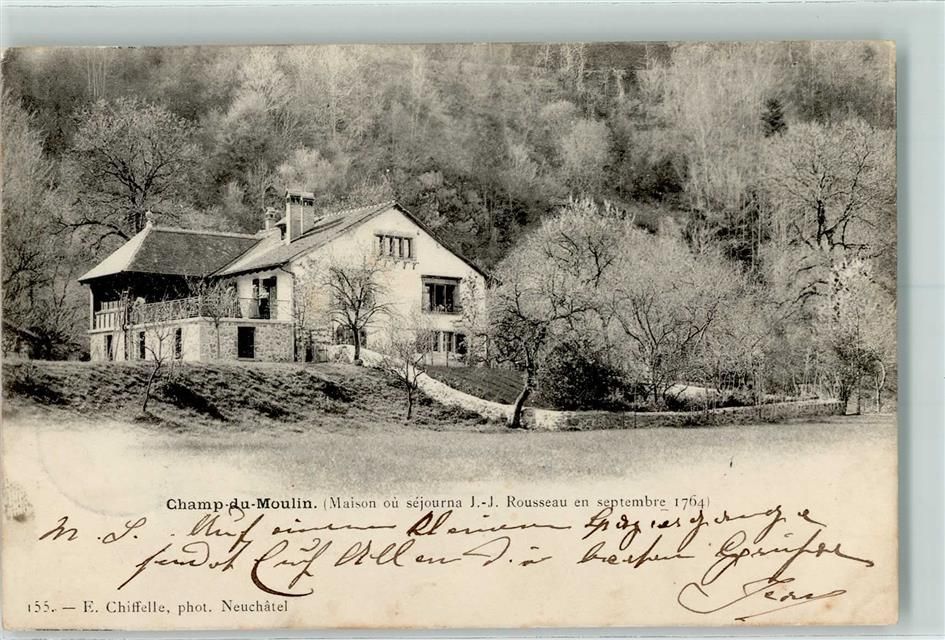 Champ-du-Moulin. (Maison où séjourna J.-J. Rousseau en septembre 1764)
M. S. Auf einem kleinen Spaziergange
sendet Euch Allen die besten Grüsse
Jean
155. — E. Chiffelle, phot. Neuchâtel